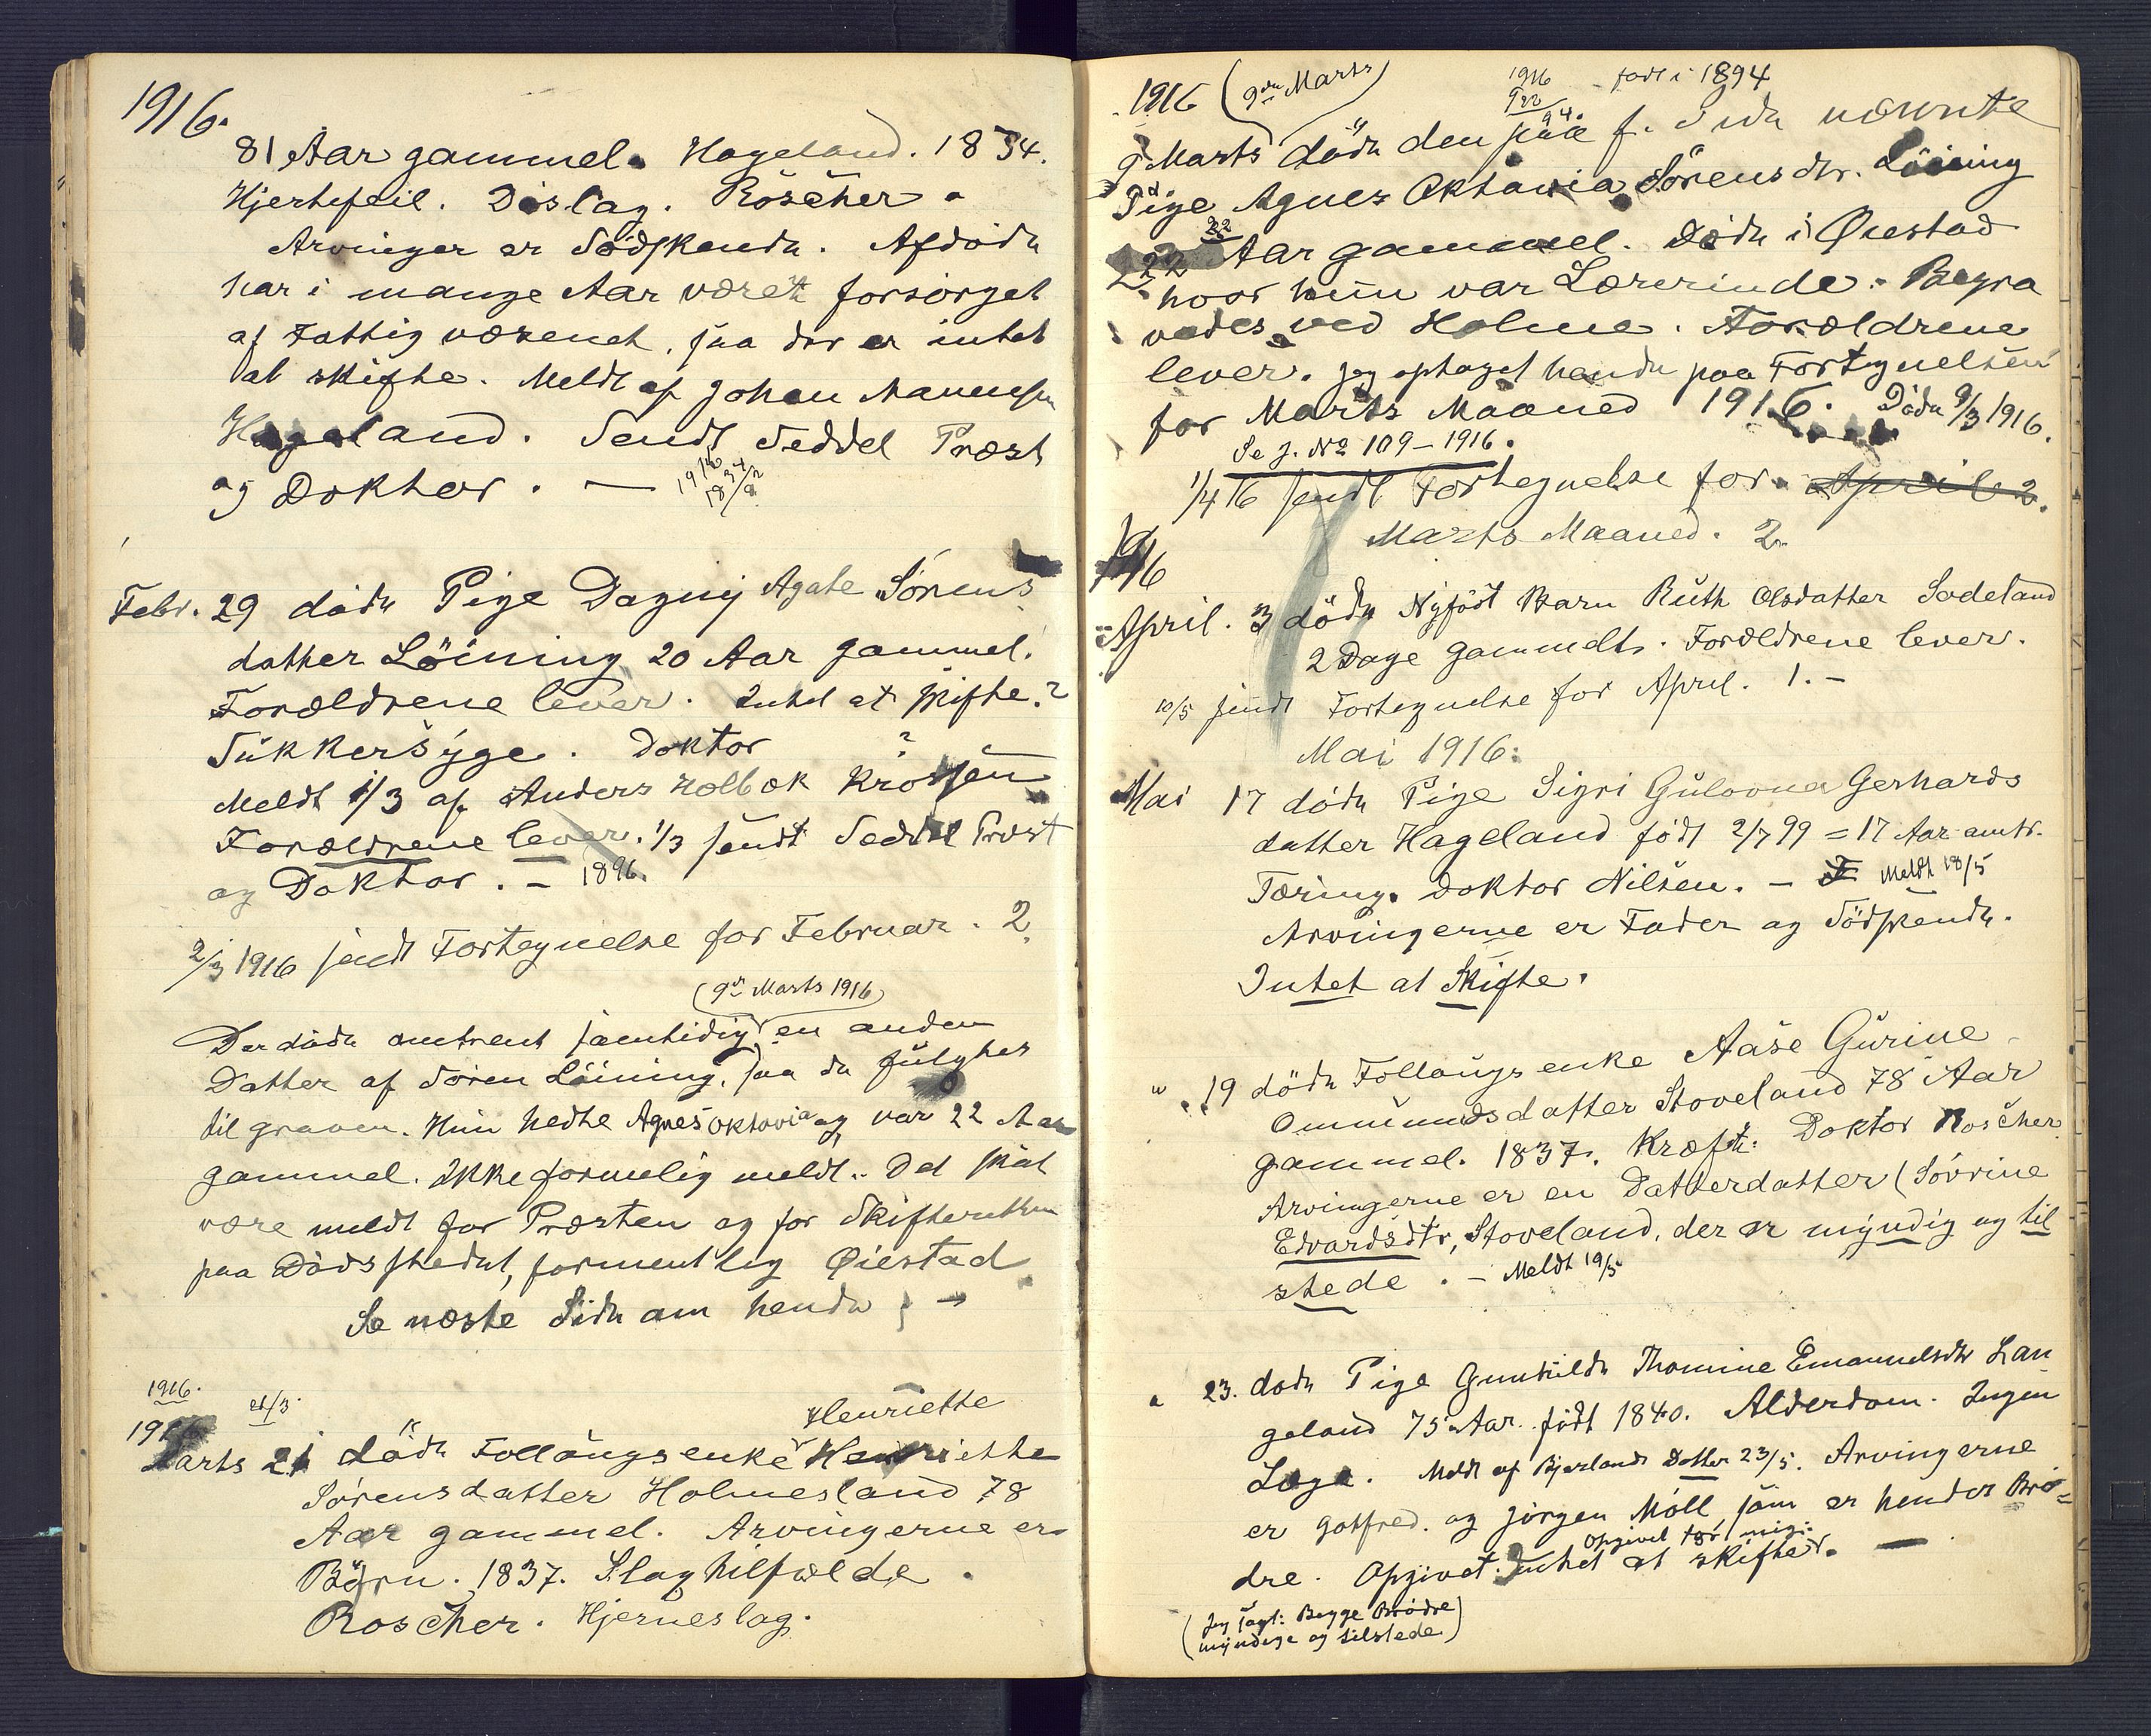 1916.
81 Aar gammel. Hageland. 1834.
Hjertefeil. Röscher.
Arvinger er Södskende. Afdöde
har i mange Aar været forsörget
af Fattigvæsenet, saa der er intet
at skifte. Meldt af Johan
Hageland. Sendt Seddel Præst
og Doktor. — 1916 1834/82
Febr. 29 döde Pige Dagny Agate Sörens
datter Löining 20 Aar gammel.
Forældrene lever. Intet at skifte.?
Sukkersyge. Doktor ?
Meldt 1/3 af Anders Holbæk Krossen
Forældrene lever. 1/3 sendt Seddel Præst
og Doktor. — 1896.
2/3 1916 sendt Fortegnelse for Februar. 2.
(9de Marts 1916)
Der döde omtrent samtidig en anden
Datter af Sören Löining, saa de fulgtes
til graven. Hun hedte Agnes Oktavia og var 22 Aar
gammel. Ikke formelig meldt. Det skal
være meldt for Præsten og for Skifteretten
paa Dödsstedet, formentlig Öiestad
Se næste Side om hende →
1916. 21/3.
Henriette
Marts 21 döde Follaugsenke Henriette
Sörensdatter Holmesland 78
Aar gammel. Arvingerne er
Börn. 1837. Slagtilfælde.
Roscher. Hjerneslag.
1916 (9de Marts) 1916 22 94. født i 1894
9 Marts döde den paa f. Side nævnte
Pige Agnes Oktavia Sörensdtr. Löining
22 Aar gammel. Döde i Öiestad
hvor hun var Lærerinde. Begra
vedes ved Holme. Forældrene
lever. Jeg optaget hende paa Fortegnelsen
for Marts Maaned 1916. Döde 9/3 1916.
Se J. No 109 – 1916.
1/4 16 sendt Fortegnelse for April 2.
Marts Maaned. 2
1916
April. 3 döde Nyfödt Barn Ruth Olsdatter Sodeland
2 Dage gammelt. Forældrene lever.
10/5 sendt Fortegnelse for April. 1. –
Mai 1916:
Mai 17 döde Pige Sigri Gulovna Gerhards
datter Hageland födt 2/7 99 = 17 Aar omtr.
Tæring. Doktor Nilsen. – Meldt 18/5
Arvingerne er Fader og Södskende.
Intet at Skifte.
" 19 döde Follaugsenke Aase Gurine
Ommundsdatter Stoveland 78 Aar
gammel. 1837. Kræft. Doktor Roscher
Arvingerne er en Datterdatter (Sövrine
Edvardsdtr, Stoveland, der er myndig og til
stede. – Meldt 19/5
" 23. döde Pige Gunhilde Thomine Emanuelsdtr Lan
geland 75 Aar. födt 1840. Alderdom. Ingen
Læge. Meldt af Bjerlands Datter 23/5. Arvingerne
er Gotfred. og Jörgen Möll som er hendes Brö=
opgivet for mig:
dre. Opgivet: Intet at skifte. —
(Jeg sagt: Begge Brödre
myndige og tilstede)